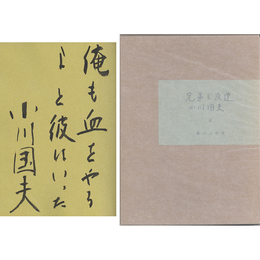 俺も血をやる
よと彼はいった
小川国夫
小川国夫